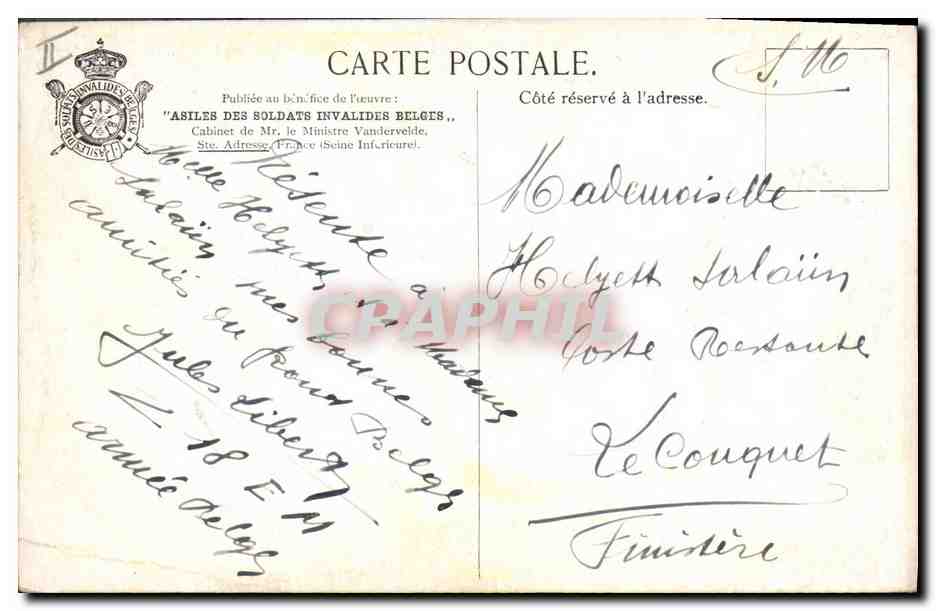 II
CARTE POSTALE.
Publiée au bénéfice de l'œuvre :
"ASILES DES SOLDATS INVALIDES BELGES„
Cabinet de Mr. le Ministre Vandervelde,
Ste. Adresse, France (Seine Inférieure).
ASILES DES SOLDATS INVALIDES BELGES
Côté réservé à l'adresse.
S. M
Présente à
Melle Helyett et Madame
Salaün mes bonnes
amitiés du front Belge
Jules Libert
Z 18 E M
armée Belge
Mademoiselle
Helyett Salaün
Poste Restante
Le Conquet
Finistère
CPAPHIL